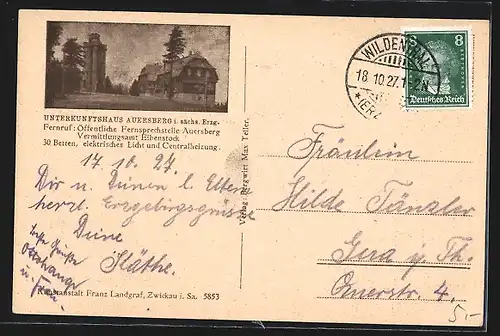 UNTERKUNFTSHAUS AUERSBERG i. sächs. Erzg.
Fernruf: Öffentliche Fernsprechstelle Auersberg
Vermittlungsamt Eibenstock
30 Betten, elektrisches Licht und Centralheizung.
17.10.27.
Dir u. Deinen l. Eltern
herzl. Erzgebirgsgrüsse
Deine
Käthe.
u. Frau.
Kunstanstalt Franz Landgraf, Zwickau i. Sa. 5853
Verlag: Bergwirt Max Teller.
WILDENTHAL
18.10.27.
*(ERZ
8
Deutsches Reich
Fräulein
Hilde Tänzler
Gera i. Th.
Querstr. 4.
5.-